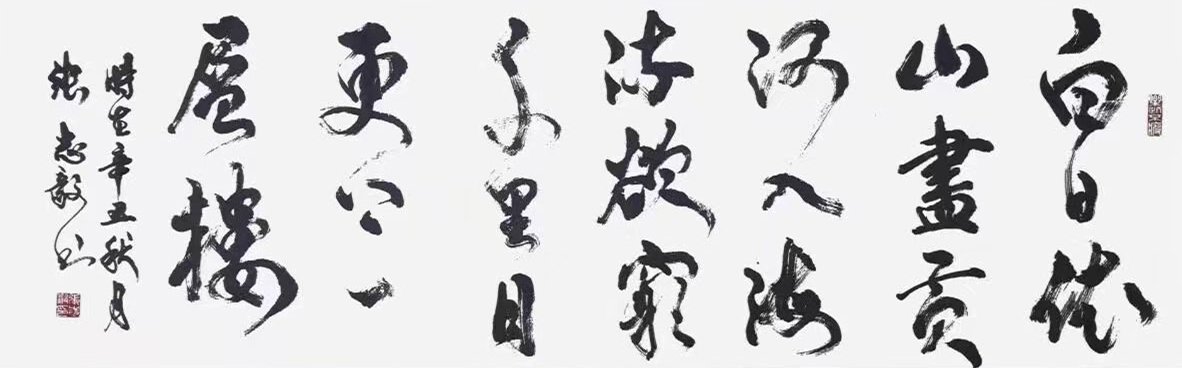 白日依
山盡黃
河入海
流欲窮
千里目
更上一
層樓
時在辛丑秋月
張志毅书